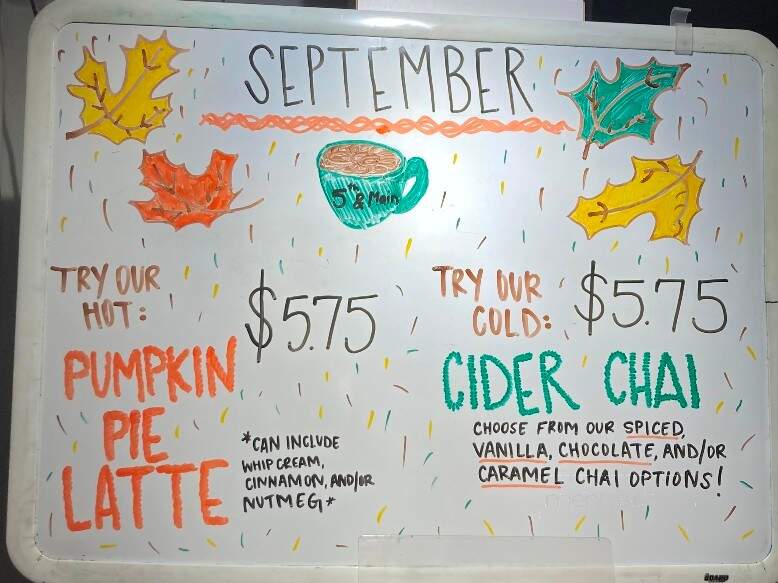 SEPTEMBER
5th & Main
TRY OUR
HOT:
$5.75
PUMPKIN
PIE
LATTE
*CAN INCLUDE
WHIP CREAM,
CINNAMON, AND/OR
NUTMEG*
TRY OUR
COLD:
$5.75
CIDER CHAI
CHOOSE FROM OUR SPICED,
VANILLA, CHOCOLATE, AND/OR
CARAMEL CHAI OPTIONS!